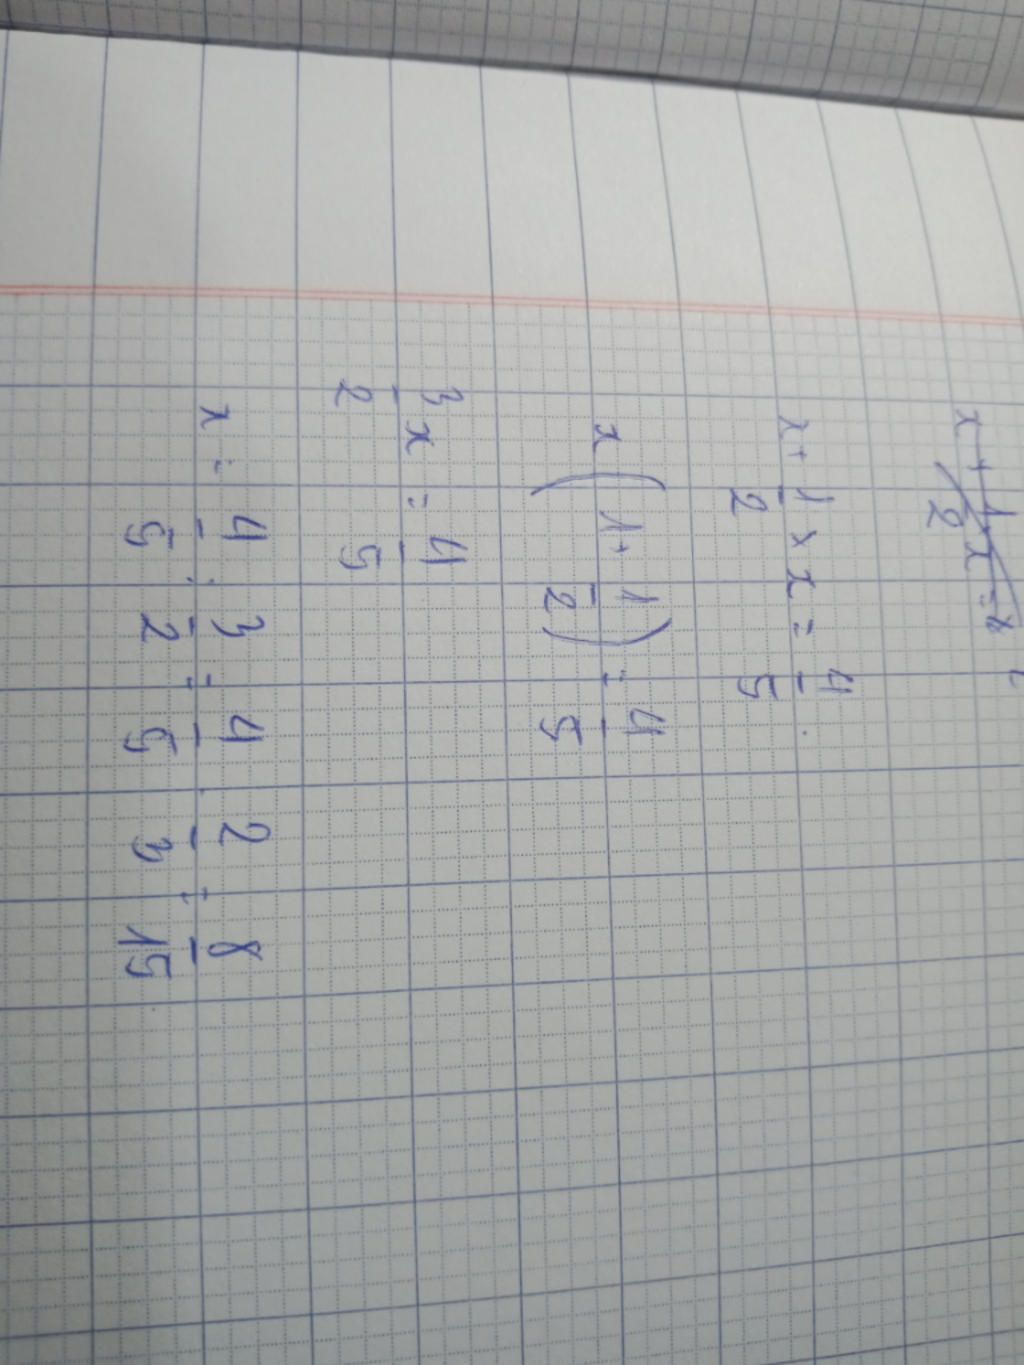 x + 1/2 x =
x + 1/2 × x = 4/5 .
x ( 1 + 1/2 ) = 4/5
3/2 x = 4/5
x = 4/5 : 3/2 = 4/5 . 2/3 = 8/15